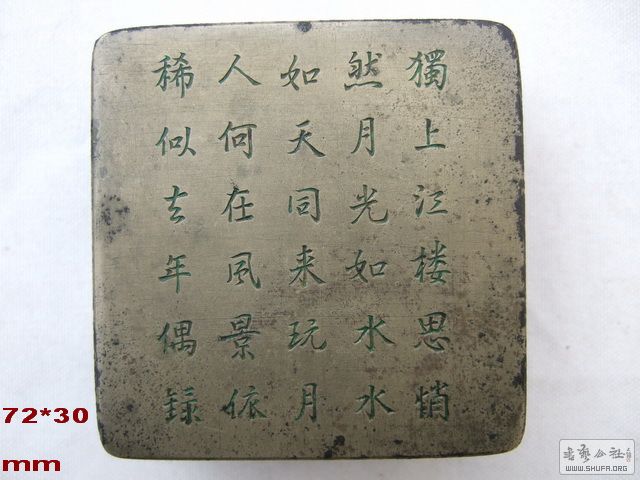 獨上江楼思悄
然月光如水水
如天同来玩月
人何在風景依
稀似去年偶録
72*30
mm
書藝公社
WWW.SHUFA.ORG